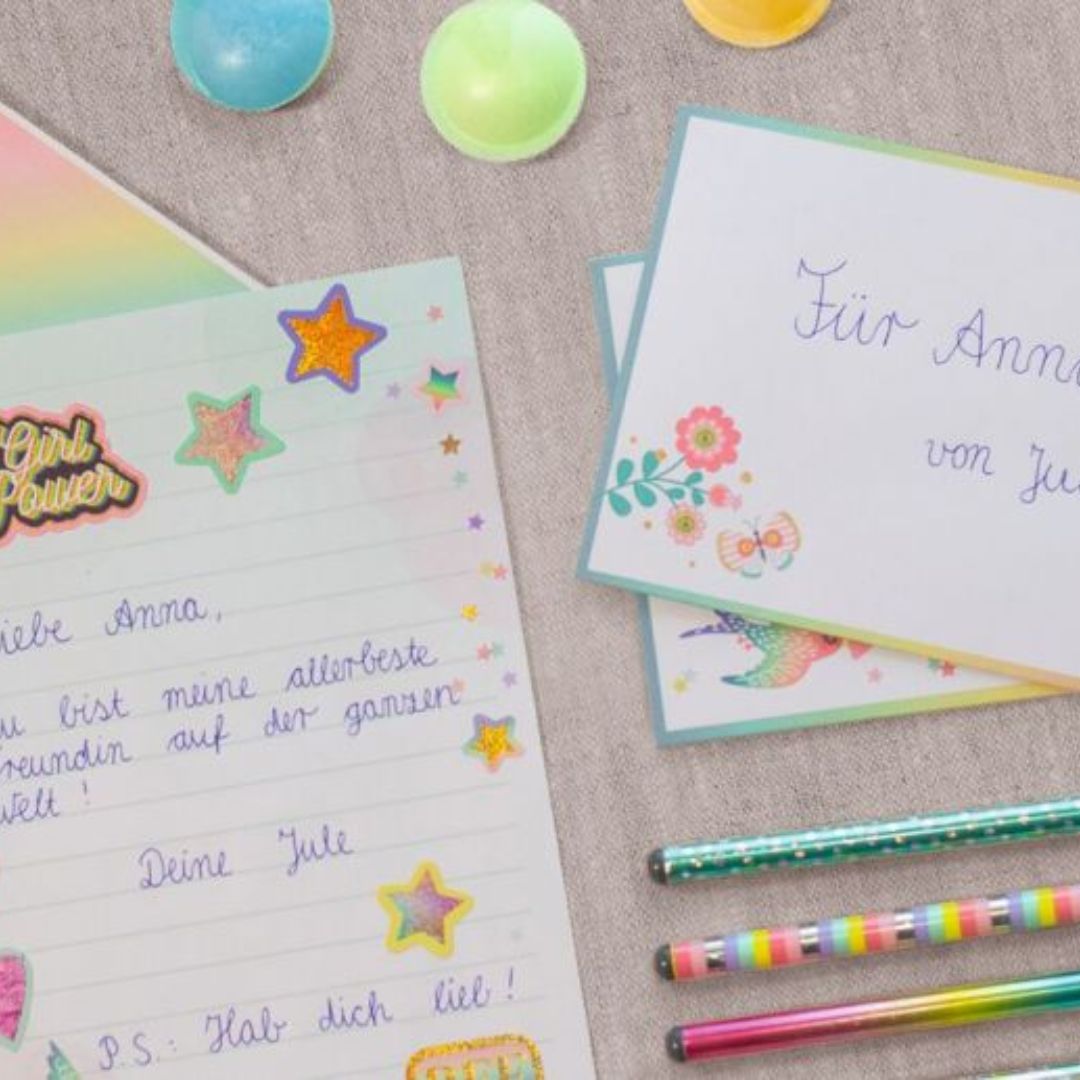 Girl
Power
iebe Anna,
u bist meine allerbeste
reundin auf der ganzen
Welt!
Deine Jule
P.S.: Hab dich lieb!
Für Anna
von Ju